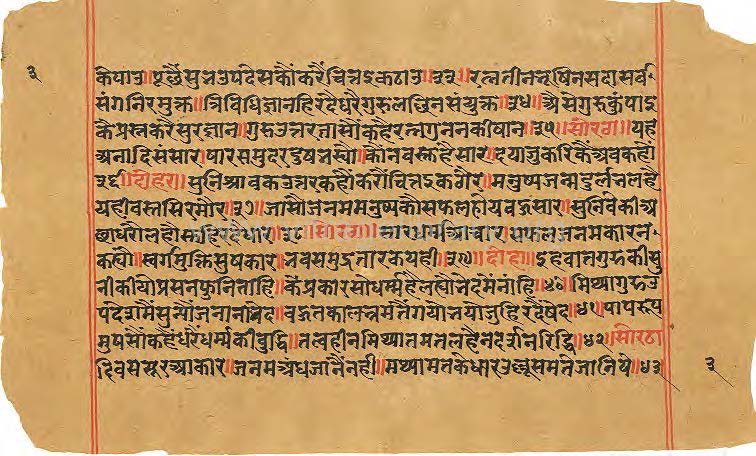 ३
केपाउ॥पूछै सु उपदेसकौं करै चित्त इकठाउ॥३३॥रत्नतीन भूषित सदा सर्व-
संगनिरमुक्त॥त्रिविधि ज्ञान हिरदै धरै गुरुलछिन संयुक्त॥३४॥अैसे गुरुकुं पाइ
कै प्रस्न करै सुरज्ञान॥गुरु उत्तर तासौं कहै रत्न गुननकी षान॥३५॥सोरठा॥यह
अनादि संसार॥पार समुद्र कौंन वस्त है सार॥दयाजु करिकैं अब कहौ॥
३६॥दोहरा॥सुनि श्रावक उत्तर कहौं करौ चित्त इक गैर॥मनुष्य जन्म दुर्लभ लहै
यही वस्त सिरमौर॥३७॥जासौं जनम मनुष्यकौ सफल होय वहु सार॥सुनि विवेकी
हिरदै धार॥३८॥सोरठा॥स्वारथ धर्म आचार॥सफल जनम कारन
कह्यौ॥स्वर्गमुक्ति सुषकार॥भवसमुद्र तारक यही॥३९॥दोहा॥इह वान गुरुकी सु
नी कीयो प्रसन फुनि ताहि॥के प्रकार सो धर्म है लह्यौ न भेद मैं नाहि॥४०॥मिथ्या गुरु उ
पदेसमैं सुन्यौं भेद॥बहुत काल मतै गयो भयो जु हिरदै षेद॥४१॥पापरूप
मुषसौं कहै धरै धर्म्मकी बुद्धि॥तत्वहीन मिथ्यातमत लहै न रिद्धि॥४२॥सोरठा
दिवस सूर आकार॥जनमअंध जानैं नही॥मथ्यामतके धार उल्लूसम ते जानिये॥४३
३